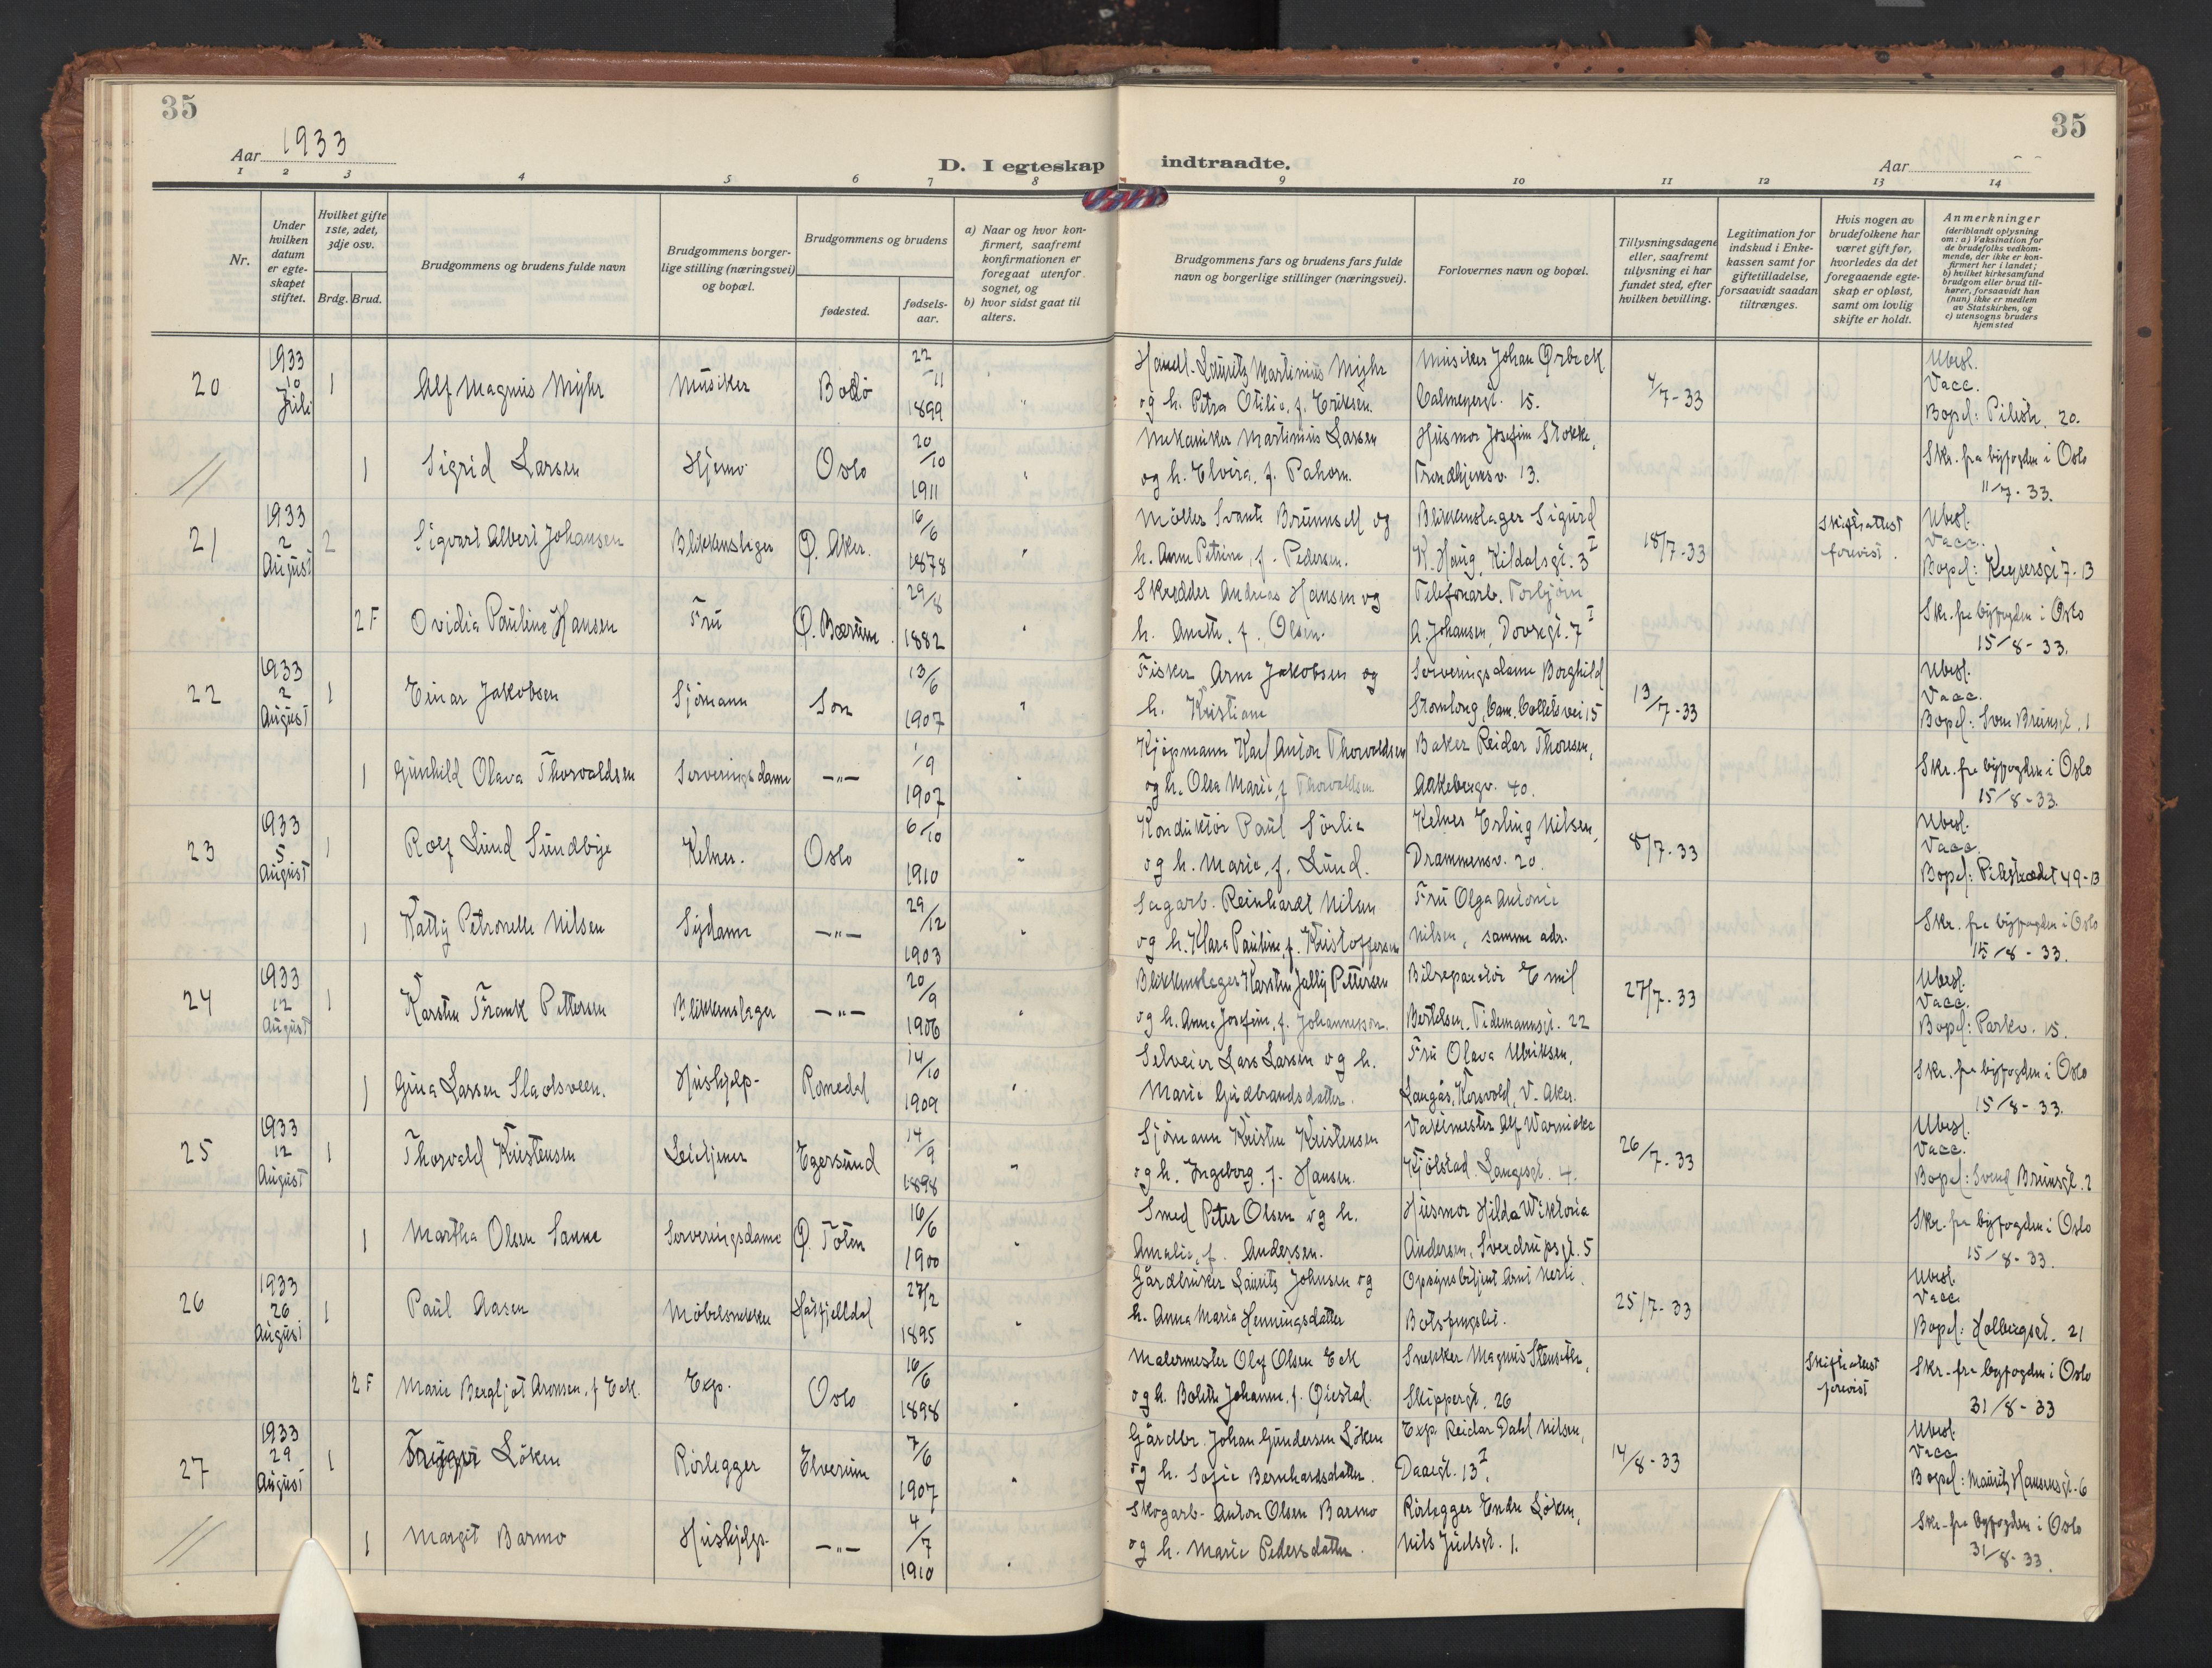 35
35
Aar 1933
D. I egteskap indtraadte.
Aar
1 2 3 4 5 6 7 8 9 10 11 12 13 14
Nr.
Under hvilken datum er egte- skapet stiftet.
Hvilket gifte 1ste, 2det, 3dje osv.
Brdg. Brud.
Brudgommens og brudens fulde navn
Brudgommens borger- lige stilling (næringsvei) og bopæl.
Brudgommens og brudens
fødested.
fødsels- aar.
a) Naar og hvor kon- firmert, saafremt konfirmationen er foregaat utenfor sognet, og b) hvor sidst gaat til alters.
Brudgommens fars og brudens fars fulde navn og borgerlige stillinger (næringsvei).
Forlovernes navn og bopæl.
Tillysningsdagene eller, saafremt tillysning ei har fundet sted, efter hvilken bevilling.
Legitimation for indskud i Enke- kassen samt for giftetilladelse, forsaavidt saadan tiltrænges.
Hvis nogen av brudefolkene har været gift før, hvorledes da det foregaaende egte- skap er opløst, samt om lovlig skifte er holdt.
Anmerkninger (deriblandt oplysning om: a) Vaksination for de brudefolks vedkom- mende, der ikke er kon- firmert her i landet; b) hvilket kirkesamfund brudgom eller brud til- hører, forsaavidt han (hun) ikke er medlem av Statskirken, og c) utensogns bruders hjemsted
20 1933 10 Juli 1 Alf Magnus Myhr Musiker Bodø 22/11 1899 " Handl. Lauritz Martinius Myhr og h. Petra Otilie, f. Eriksen. Musiker Johan Ørbeck Calmeyergt. 15. 4/7-33 Ubesl. Vacc. Bopel: Pilestr. 20.
1 Sigrid Larsen Hjemv. Oslo 20/10 1911 " Mekaniker Martinius Larsen og h. Elvira, f. Pahorn. Husmor Josefin Stokke, Trondhjemsv. 13. Skr. fra byfogden i Oslo 11/7-33.
21 1933 2 August 2 Sigvart Albert Johansen Blikkenslager Ø. Aker. 16/6 1878 " Møller Svante Brunnsell og h. Anne Petrine, f. Pedersen. Blikkenslager Sigurd K. Haug, Kildalsgt. 3 I 18/7-33 Skifteattest forevist. Ubesl. Vacc. Bopel: Keysersgt 7-B
2 F Ovidia Pauline Hansen Fru Ø. Bærum. 29/8 1882 " Skredder Andreas Hansen og h. Anette, f. Olsen. Telefonarb. Torbjørn A. Johansen, Dovregt. 7 I Skr. fra byfogden i Oslo 15/8-33.
22 1933 2 August 1 Einar Jakobsen Sjømann Son 13/6 1907 " Fisker Arne Jakobsen og h. Kristiane Serveringsdame Borghild Stomlong, Cam. Colletsvei 15 13/7-33 Ubesl. Vacc. Bopel: Sven Brunsgt. 1
1 Gunhild Olava Thorvaldsen Serveringsdame -"- 1/9 1907 " Kjøpmann Karl Anton Thorvaldsen og h. Olea Marie, f. Thorvaldsen Baker Reidar Thoresen, Aakebergv. 40. Skr. fra byfogden i Oslo 15/8-33.
23 1933 5 August 1 Rolf Lund Sundbye Kelner. Oslo 6/10 1910 " Konduktør Paul Sørlie og h. Marie, f. Lund. Kelner Erling Nilsen, Drammensv. 20. 8/7-33 Ubesl. Vacc. Bopel: Pilestrædet 49-B
1 Katty Petronelle Nilsen Sydame -"- 29/12 1903 " Sagarb. Reinhardt Nilsen og h. Klara Pauline, f. Kristoffersen Fru Olga Antonie Nilsen, samme adr. Skr. fra byfogden i Oslo 15/8-33.
24 1933 12 August 1 Karsten Frank Pettersen Blikkenslager -"- 20/9 1906 " Blikkenslager Karsten Jally Pettersen og h. Anna Josefine, f. Johannesson. Bilreparatør Emil Bertelsen, Tidemannsgt. 22 27/7-33 Ubesl. Vacc. Bopel: Parkv. 15.
1 Gina Larsen Sladsveen. Hushjelp. Romedal 14/10 1909 " Selveier Lars Larsen og h. Marie Gudbrandsdatter. Fru Olava Ulriksen, Langås, Korsvold, V. Aker. Skr. fra byfogden i Oslo 15/8-33.
25 1933 12 August 1 Thorvald Kristensen Leietjener Egersund 14/9 1898 " Sjømann Kristen Kristensen og h. Ingeborg f. Hansen. Vaktmester Alf Warnicke Kjølstad Langesgt. 4. 26/7-33 Ubesl. Vacc. Bopel: Svend Brunsgt. 2
1 Martha Olsen Sanne Serveringsdame Ø. Toten 16/6 1900 " Smed Peter Olsen og h. Amalie, f. Andersen. Husmor Hilda Wiktoria Andersen, Sverdrupsgt. 5 Skr. fra byfogden i Oslo 15/8-33.
26 1933 26 August 1 Paul Aasen Møbelsnekker Hatfjelldal 27/2 1895 " Gårdbruker Lauritz Johnsen og h. Anna Maria Henningsdatter Opsynsbetjent Arnt Nerli. Botsfengslet. 25/7-33 Ubesl. Vacc Bopel: Holbergsgt. 21
2 F Marie Bergljot Aronsen, f Eck. Exp. Oslo 16/6 1898 " Malermester Olaf Olsen Eck og h. Bolette Johanne, f. Øiestad. Snekker Magnus Stenseth, Skippergt. 26 Skifteattest forevist Skr. fra byfogden i Oslo 31/8-33
27 1933 29 August 1 Trygve Løken Rørlegger Elverum 7/6 1907 " Gårdbr. Johan Gundersen Løken og h. Sofie Bernhardsdatter. Exp. Reidar Dahl Nilsen, Daaegt. 13 I. 14/8-33 Ubesl. Vacc Bopel: Mauritz Hansensgt. 6
1 Margit Barmo Hushjelp. -"- 4/7 1910 " Skogarb. Anton Olsen Barmo og h. Marie Pedersdatter. Rørlegger Endre Løken, Nils Juelsgt. 1. Skr. fra byfogden i Oslo 31/8-33.